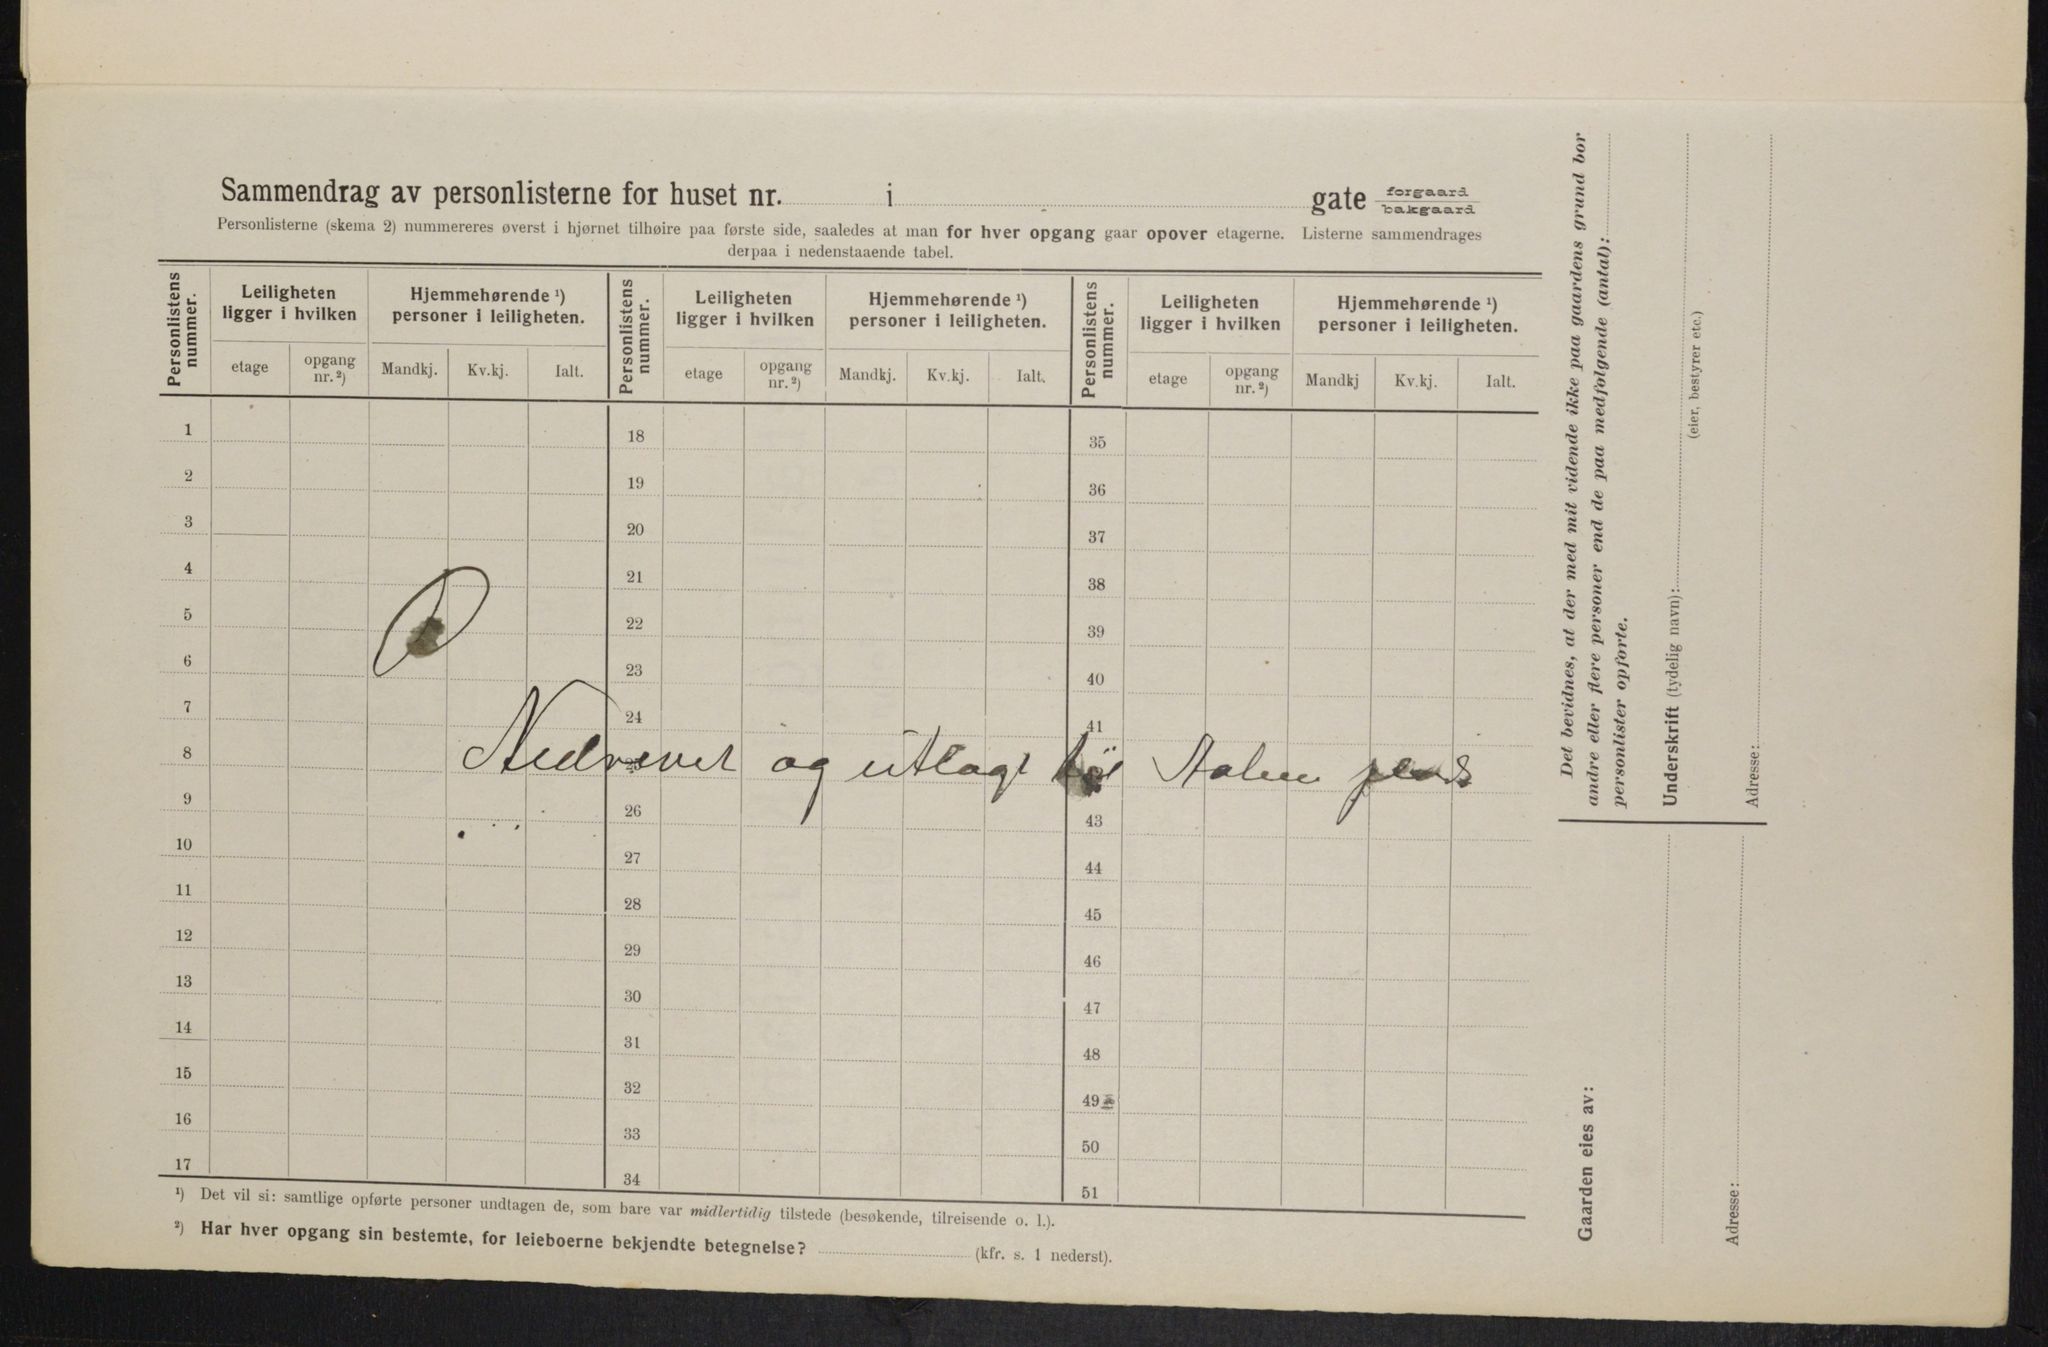 Sammendrag av personlisterne for huset nr. i gate forgaard bakgaard
Personlisterne (skema 2) nummereres øverst i hjørnet tilhøire paa første side, saaledes at man for hver opgang gaar opover etagerne. Listerne sammendrages
derpaa i nedenstaaende tabel.
Personlistens nummer. Leiligheten ligger i hvilken Hjemmehørende ¹) personer i leiligheten. Personlistens nummer. Leiligheten ligger i hvilken Hjemmehørende ¹) personer i leiligheten. Personlistens nummer. Leiligheten ligger i hvilken Hjemmehørende ¹) personer i leiligheten.
etage opgang nr.²) Mandkj. Kv.kj. Ialt. etage opgang nr.²) Mandkj. Kv.kj. Ialt. etage opgang nr.²) Mandkj Kv.kj. Ialt.
1 18 35
2 19 36
3 20 37
4 21 38
5 22 39
6 23 40
7 24 41
8
Nedrevet og utlagt
9 26 43
10 27 44
11 28 45
12 29 46
13 30 47
14 31 48
15 32 49
16 33 50
17 34 51
¹) Det vil si: samtlige opførte personer undtagen de, som bare var midlertidig tilstede (besøkende, tilreisende o. l.).
²) Har hver opgang sin bestemte, for leieboerne bekjendte betegnelse? (kfr. s. 1 nederst).
Det bevidnes, at der med mit vidende ikke paa gaardens grund bor
andre eller flere personer end de paa medfølgende (antal):
personlister opførte.
Underskrift (tydelig navn):
(eier, bestyrer etc.)
Adresse:
Gaarden eies av:
Adresse: